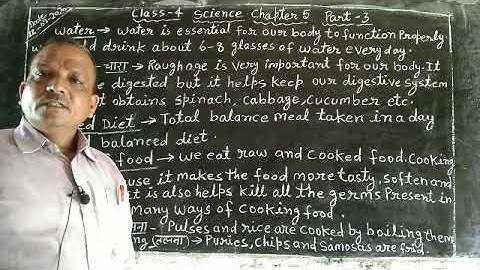 Class-4 Science Chapter 5 Part-3
Water → Water is essential for our body to function properly
drink about 6-8 glasses of water everyday.
चारा → Roughage is very important for our body. It
digested but it helps keep our digestive system
obtains spinach, cabbage, cucumber etc.
Diet → Total balance meal taken in a day
balanced diet.
food → we eat raw and cooked food. Cooking
it makes the food more tasty, soften and
is also helps kill all the germs Present in
many ways of cooking food.
Pulses and rice are cooked by boiling them
(तलना) → Puries, Chips and Samosas are fried.